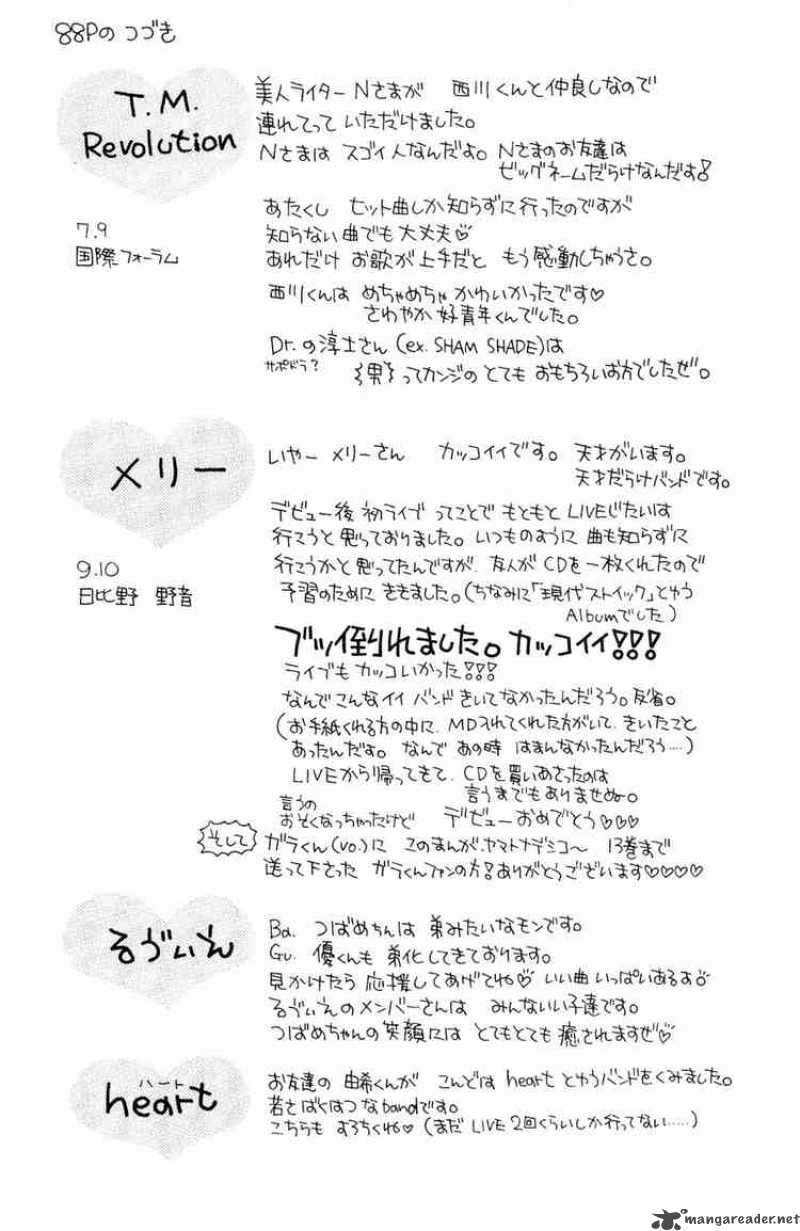 88Pの つづき
T.M.
Revolution
7.9
国際フォーラム
美人ライター Nさまが 西川くんと仲良しなので
連れてって いただけました。
Nさまは スゴイ人なんだよ。 Nさまのお友達は
ビッグネームだらけなんだよ!
あたくし ヒット曲しか知らずに行ったのですが
知らない曲でも大丈夫♡
あれだけ お歌が上手だと もう感動しちゃうさ。
西川くんは めちゃめちゃ かわいかったです♡
さわやか 好青年くんでした。
Dr.の淳士さん (ex. SHAM SHADE)は
サポドラ?
男 ってカンジの とても おもちろいお方でしたぜ。
メリー
9.10
日比野 野音
いやー メリーさん カッコイイです。 天才がいます。
天才だらけバンドです。
デビュー後 初ライブ ってことで もともと LIVEじたいは
行こうと思っておりました。いつものように 曲も知らずに
行こうかと思ってたんですが、友人が CDを一枚くれたので
予習のために ききました。(ちなみに「現代ストイック」とゆう
Albumでした)
ブッ倒れました。カッコイイ!!!
ライブも カッコいかった!!!
なんで こんなイイ バンド きいてなかったんだろう。反省。
(お手紙くれる方の中に、MD入れてくれた方がいて、きいたこと
あったんだよ。 なんで あの時 はまんなかったんだろう…。)
LIVEから帰ってきて、CDを買いあさったのは
言うまでもありませぬ。
言うの
おそくなっちゃったけど デビュー おめでとう♡♡♡
そして ガラくん(vo.)に このまんが、ヤマトナデシコ〜 13巻まで
送って下さった ガラくんファンの方!ありがとうございます♡♡♡♡
るゔぃえ
Ba. つばめちんは 弟みたいなモンです。
Gu. 優くんも 弟化してきております。
見かけたら 応援してあげてね♡ いい曲いっぱいあるよ♡
るゔぃえのメンバーさんは みんないい子達です。
つばめちゃんの笑顔には とてもとても 癒されますぜ♡
ハート
heart
お友達の 由希くんが こんどは heart とゆうバンドをくみました。
若さばくはつなbandです。
こちらも よろちくね♡ (まだ LIVE 2回くらいしか行ってない……)
mangareader.net